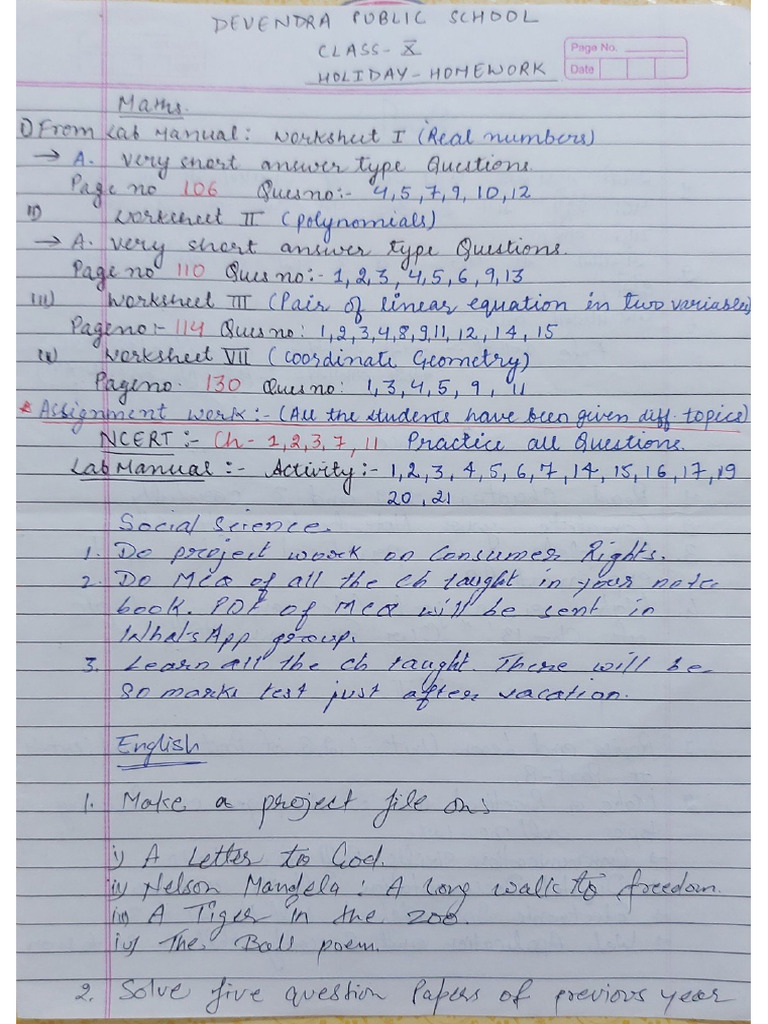 DEVENDRA PUBLIC SCHOOL
CLASS - X
HOLIDAY - HOMEWORK
Page No.
Date
Maths.
i) From Lab Manual: Worksheet I (Real numbers)
→ A. Very short answer type Questions.
Page no 106 Ques no:- 4,5,7,9,10,12
ii) Worksheet II (polynomials)
→ A. Very short answer type Questions.
Page no 110 Ques no:- 1,2,3,4,5,6,9,13
iii) Worksheet III (Pair of linear equation in two variables)
Page no:- 114 Ques no: 1,2,3,4,8,9,11,12,14,15
iv) Worksheet VII (Coordinate Geometry)
Page no. 130 Ques no: 1,3,4,5,9,11
* Assignment Work:- (All the students have been given diff. topics)
NCERT:- Ch- 1,2,3,7,11 Practice all Questions.
Lab Manual:- Activity:- 1,2,3,4,5,6,7,14,15,16,17,19
20,21
Social Science.
1. Do project work on Consumer Rights.
2. Do MCQ of all the ch taught in your note
book. PDF of MCQ will be sent in
WhatsApp group.
3. Learn all the ch taught. There will be
80 marks test just after vacation.
English
1. Make a project file on:
i) A Letter to God.
ii) Nelson Mandela: A long walk to freedom.
iii) A Tiger in the zoo.
iv) The Ball poem.
2. Solve five question Papers of previous year